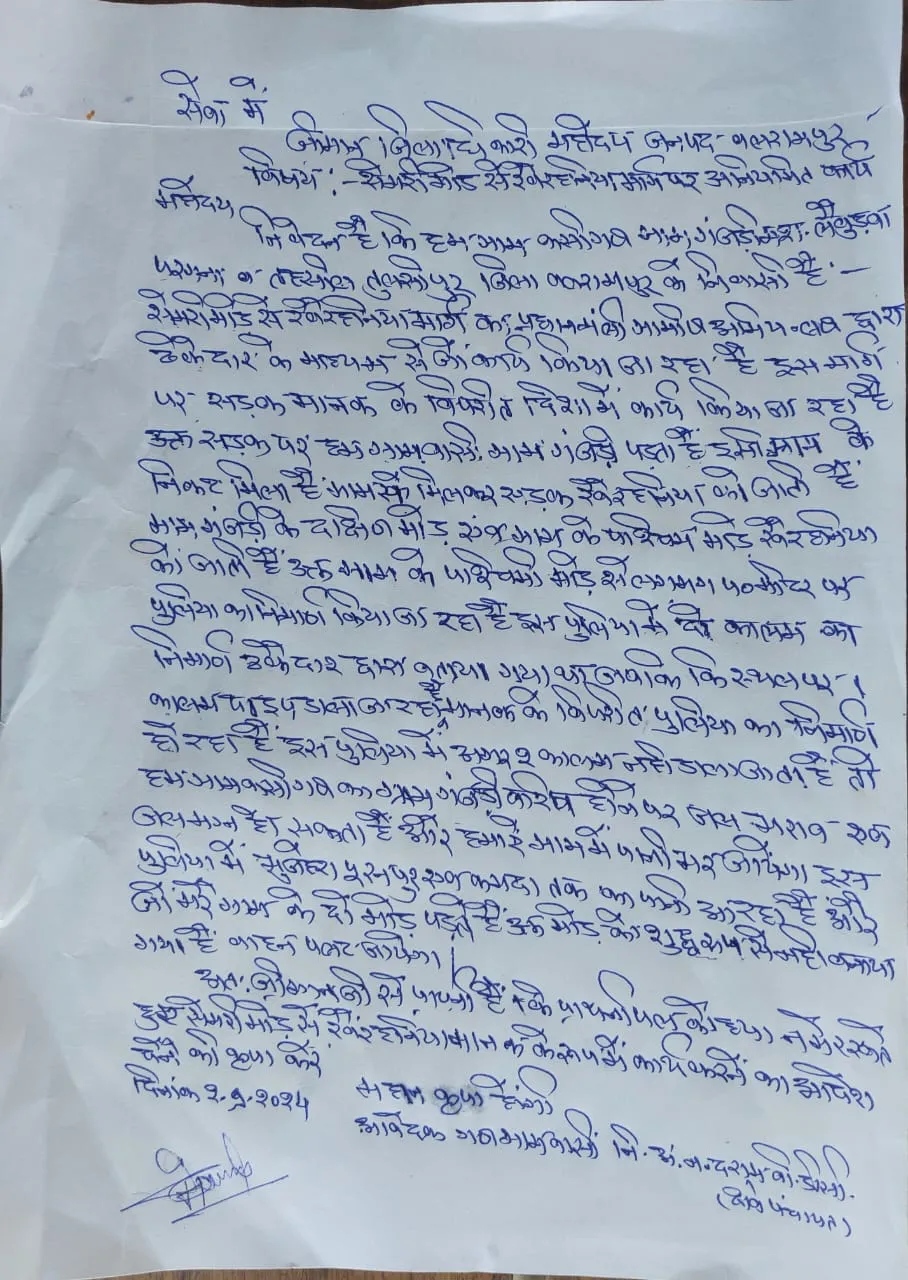 सेवा में
श्रीमान जिलाधिकारी महोदय जनपद- बलरामपुर
विषय :- सेमरी मोड़ से खैरहनिया मार्ग पर अनियमित कार्य
महोदय
निवेदन है कि हम ग्राम वासीगण ग्राम गंजड़ी
परगना व तहसील तुलसीपुर जिला बलरामपुर के निवासी हैं -
सेमरी मोड़ से खैरहनिया मार्ग का द्वारा
ठेकेदार के माध्यम से जो कार्य किया जा रहा है इस मार्ग
पर सड़क मानक के विपरीत दिशा में कार्य किया जा रहा है
उक्त सड़क पर हम ग्रामवासी ग्राम गंजड़ी पड़ता है इसी ग्राम के
निकट मिला है ग्राम से मिलकर सड़क खैरहनिया को जाती है
ग्राम गंजड़ी के दक्षिण मोड़ एवं ग्राम के पश्चिम मोड़ खैरहनिया
को जाते हैं उक्त ग्राम के पश्चिमी मोड़ से लगभग मीटर पर
पुलिया का निर्माण किया जा रहा है इस पुलिया में दो कालम का
निर्माण ठेकेदार द्वारा बताया गया था जबकि कि स्थल पर १
कालम डाला जा रहा है मानक के विपरीत पुलिया का निर्माण
हो रहा है इस पुलिया में अगर २ कालम नही डाला जाता है तो
हम ग्रामवासीगण का ग्राम गंजड़ी होने पर जल एवं
जलमग्न हो सकता है और हमारे ग्राम में पानी भर जायेगा इस
पुलिया में तक का पानी आ रहा है और
जो मेरे ग्राम के दो मोड़ पड़ते हैं उक्त मोड़ को शुद्ध रूप से नही बनाया
गया है वाहन पलट जायेगा।
अतः श्रीमान जी से प्रार्थना है कि प्रार्थना पत्र को ध्यान में रखते
हुए सेमरी मोड़ से खैरहनिया मानक के रूप में कार्य करने का आदेश
देने की कृपा करें
दिनांक 2-9-2024
महान कृपा होगी
आवेदक गण ग्रामवासी
(क्षेत्र पंचायत)